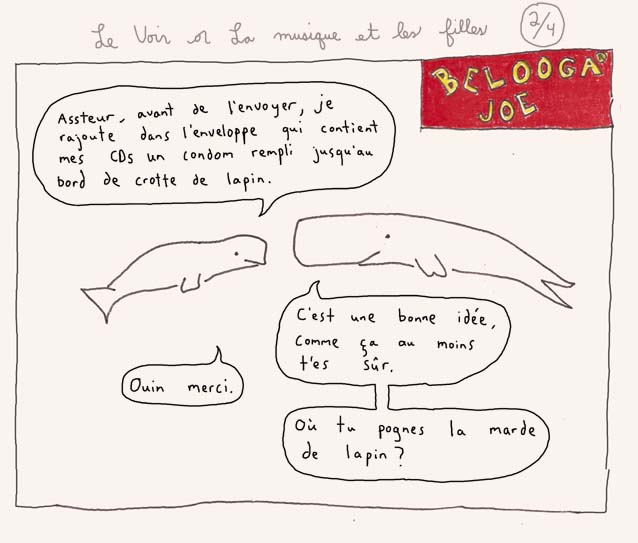 Le Voir or La musique et les filles 2/4
BELOOGA
JOE
Assteur, avant de l'envoyer, je
rajoute dans l'enveloppe qui contient
mes CDs un condom rempli jusqu'au
bord de crotte de lapin.
C'est une bonne idée,
comme ça au moins
t'es sûr.
Ouin merci.
Où tu pognes la marde
de lapin?